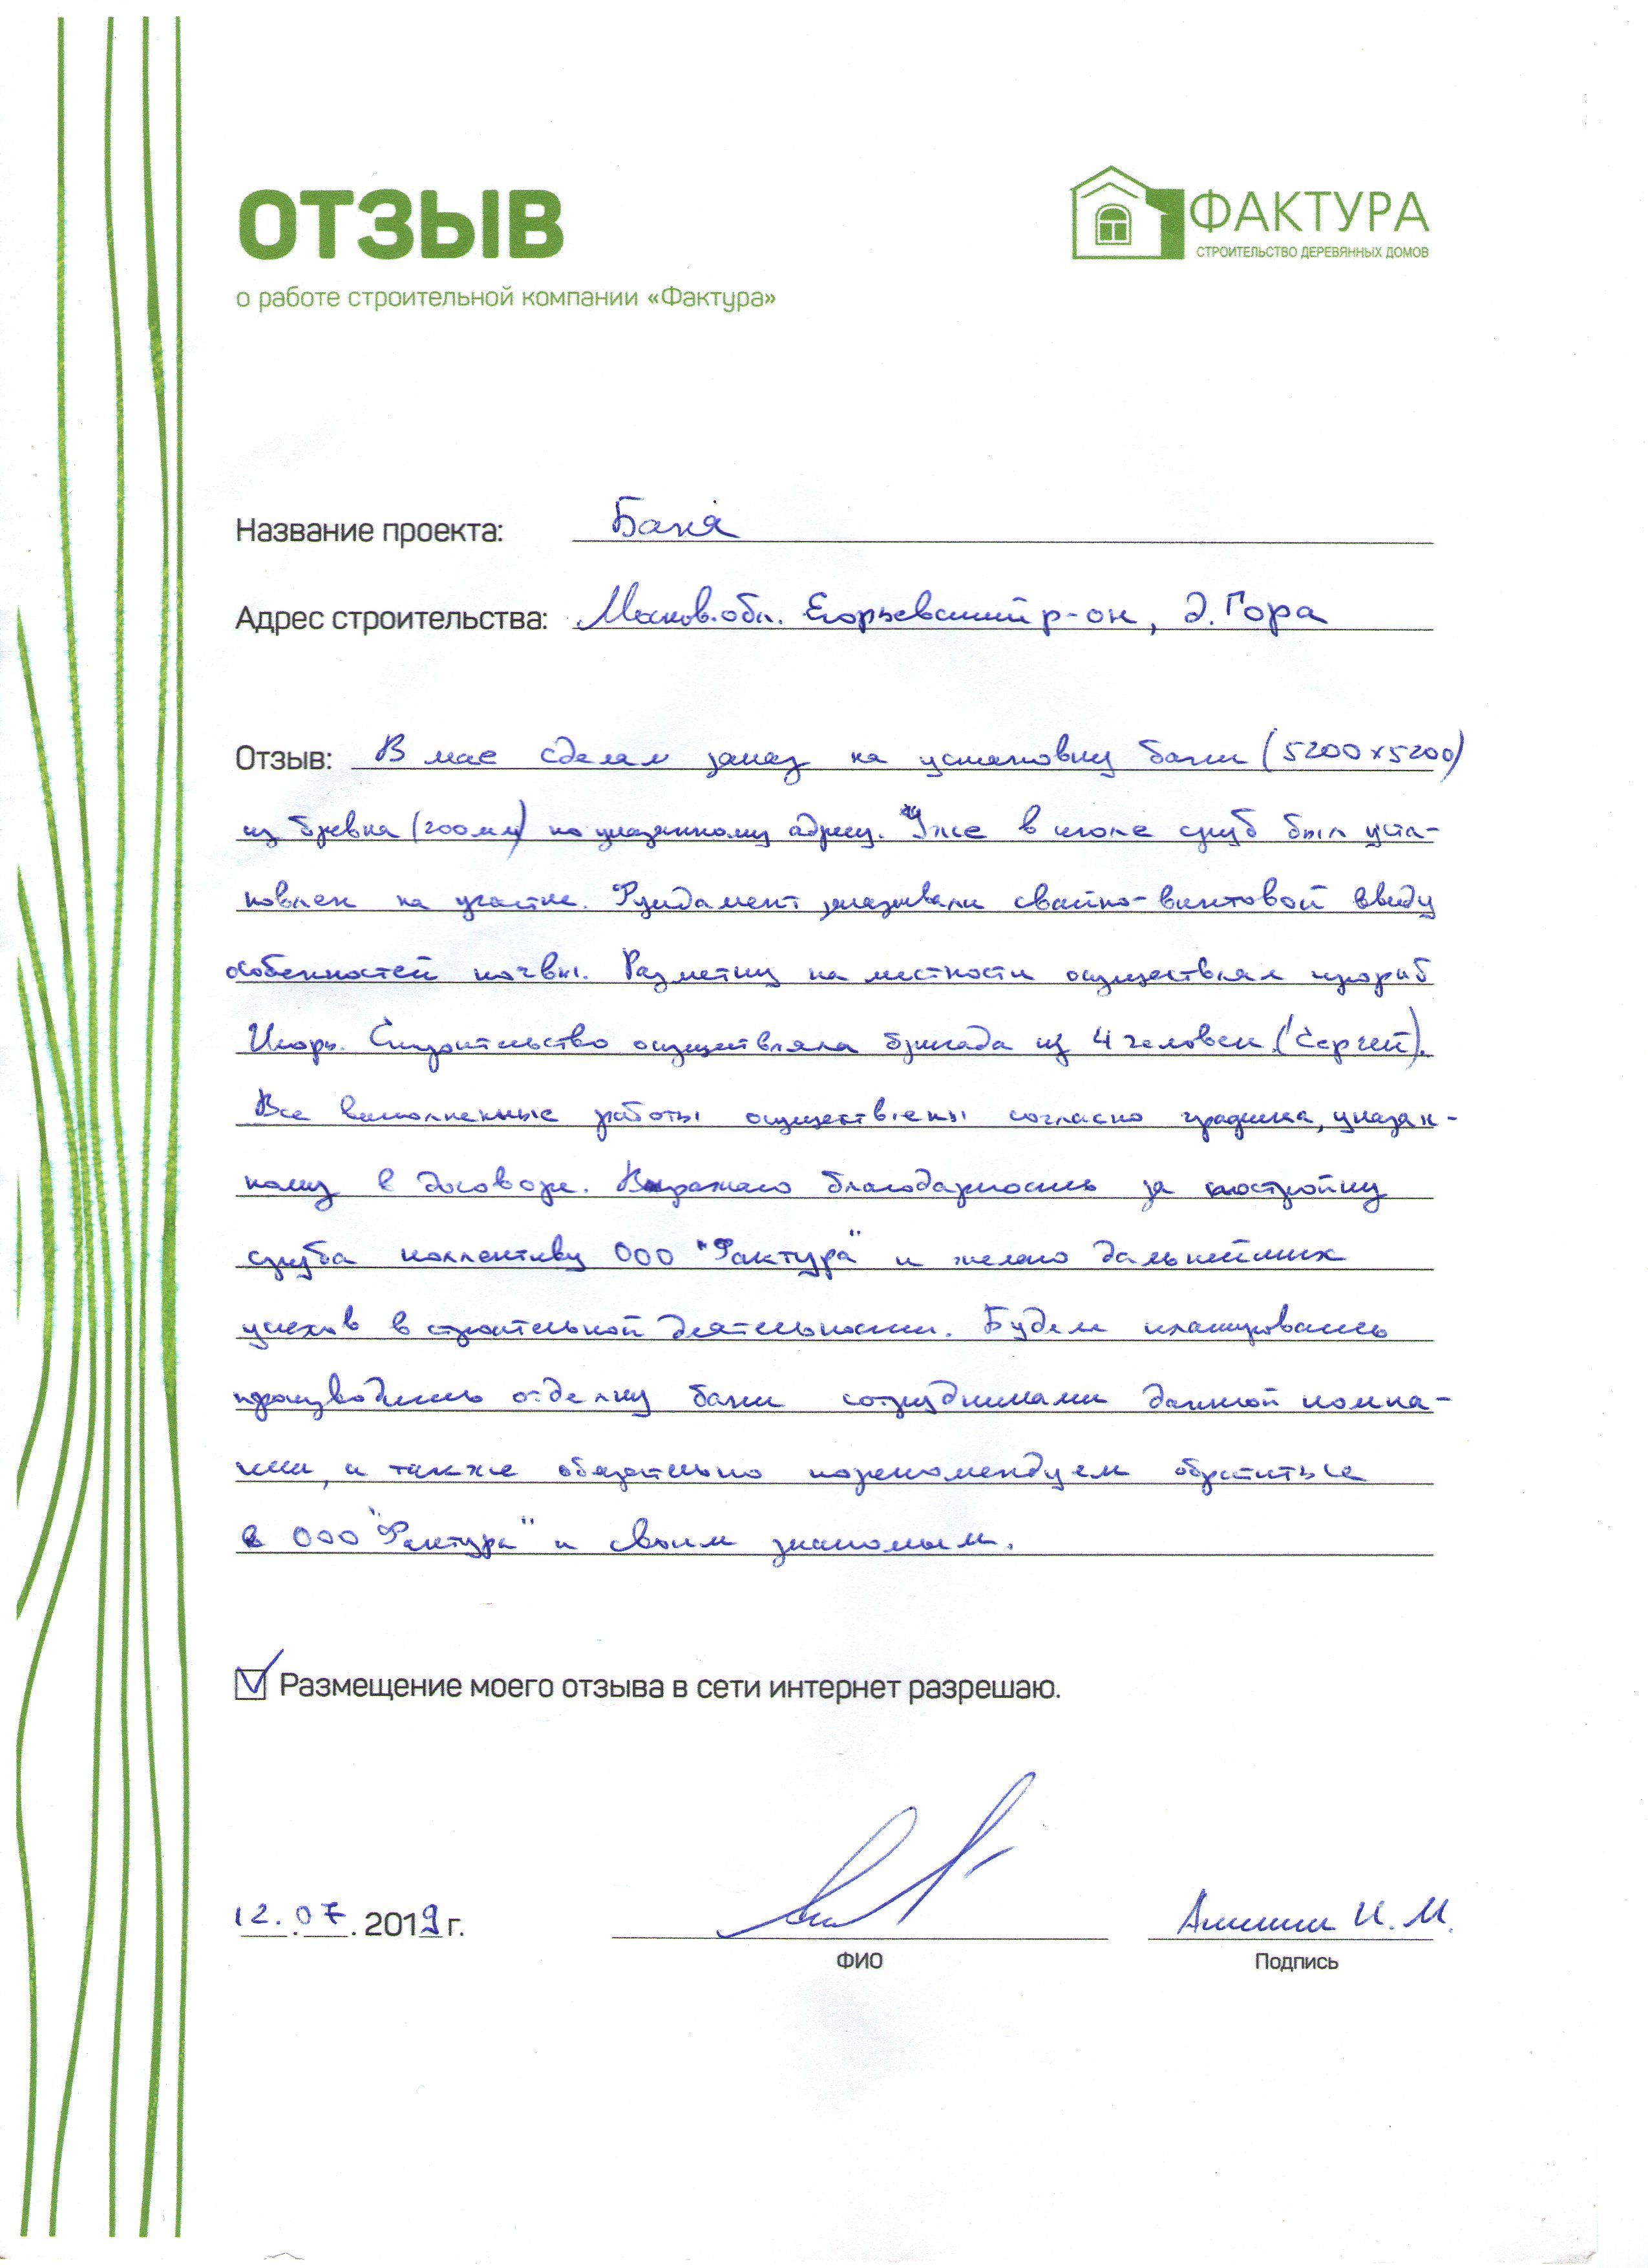 ОТЗЫВ
ФАКТУРА
СТРОИТЕЛЬСТВО ДЕРЕВЯННЫХ ДОМОВ
о работе строительной компании «Фактура»
Название проекта: Баня
Адрес строительства: Москов.обл. Егорьевский р-он, д. Гора
Отзыв: В мае сделал заказ на установку бани (5200х5200)
из бревна (200мм) по указанному адресу. Уже в июле сруб был уста-
новлен на участке. Фундамент заказывали свайно-винтовой ввиду
особенностей почвы. Разметку на местности осуществлял прораб
Игорь. Строительство осуществляла бригада из 4 человек (Сергей).
Все выполненные работы осуществлены согласно графика, указан-
ному в договоре. Выражаю благодарность за постройку
сруба коллективу ООО "Фактура" и желаю дальнейших
успехов в строительной деятельности. Будем планировать
производить отделку бани сотрудниками данной компа-
нии, а также обязательно порекомендуем обратиться
в ООО "Фактура" и своим знакомым.
Размещение моего отзыва в сети интернет разрешаю.
12.07.2019 г.
И. М.
ФИО
Подпись